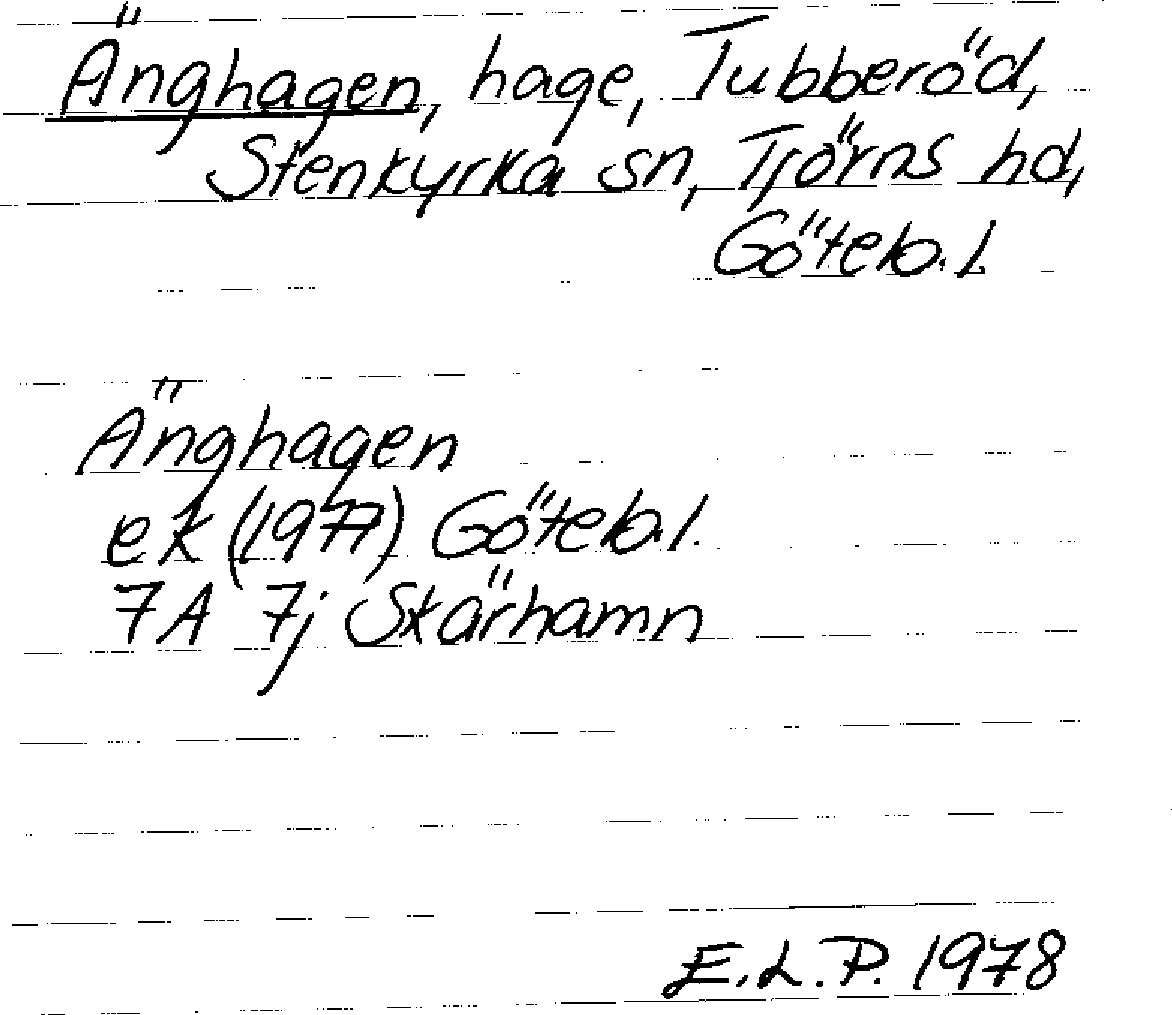 Änghagen, hage, Tubberöd,
Stenkyrka sn, Tjörns hd,
Göteb. l.
Änghagen
ek (1977) Göteb. l.
7A 7j Skärhamn
E.L.P. 1978